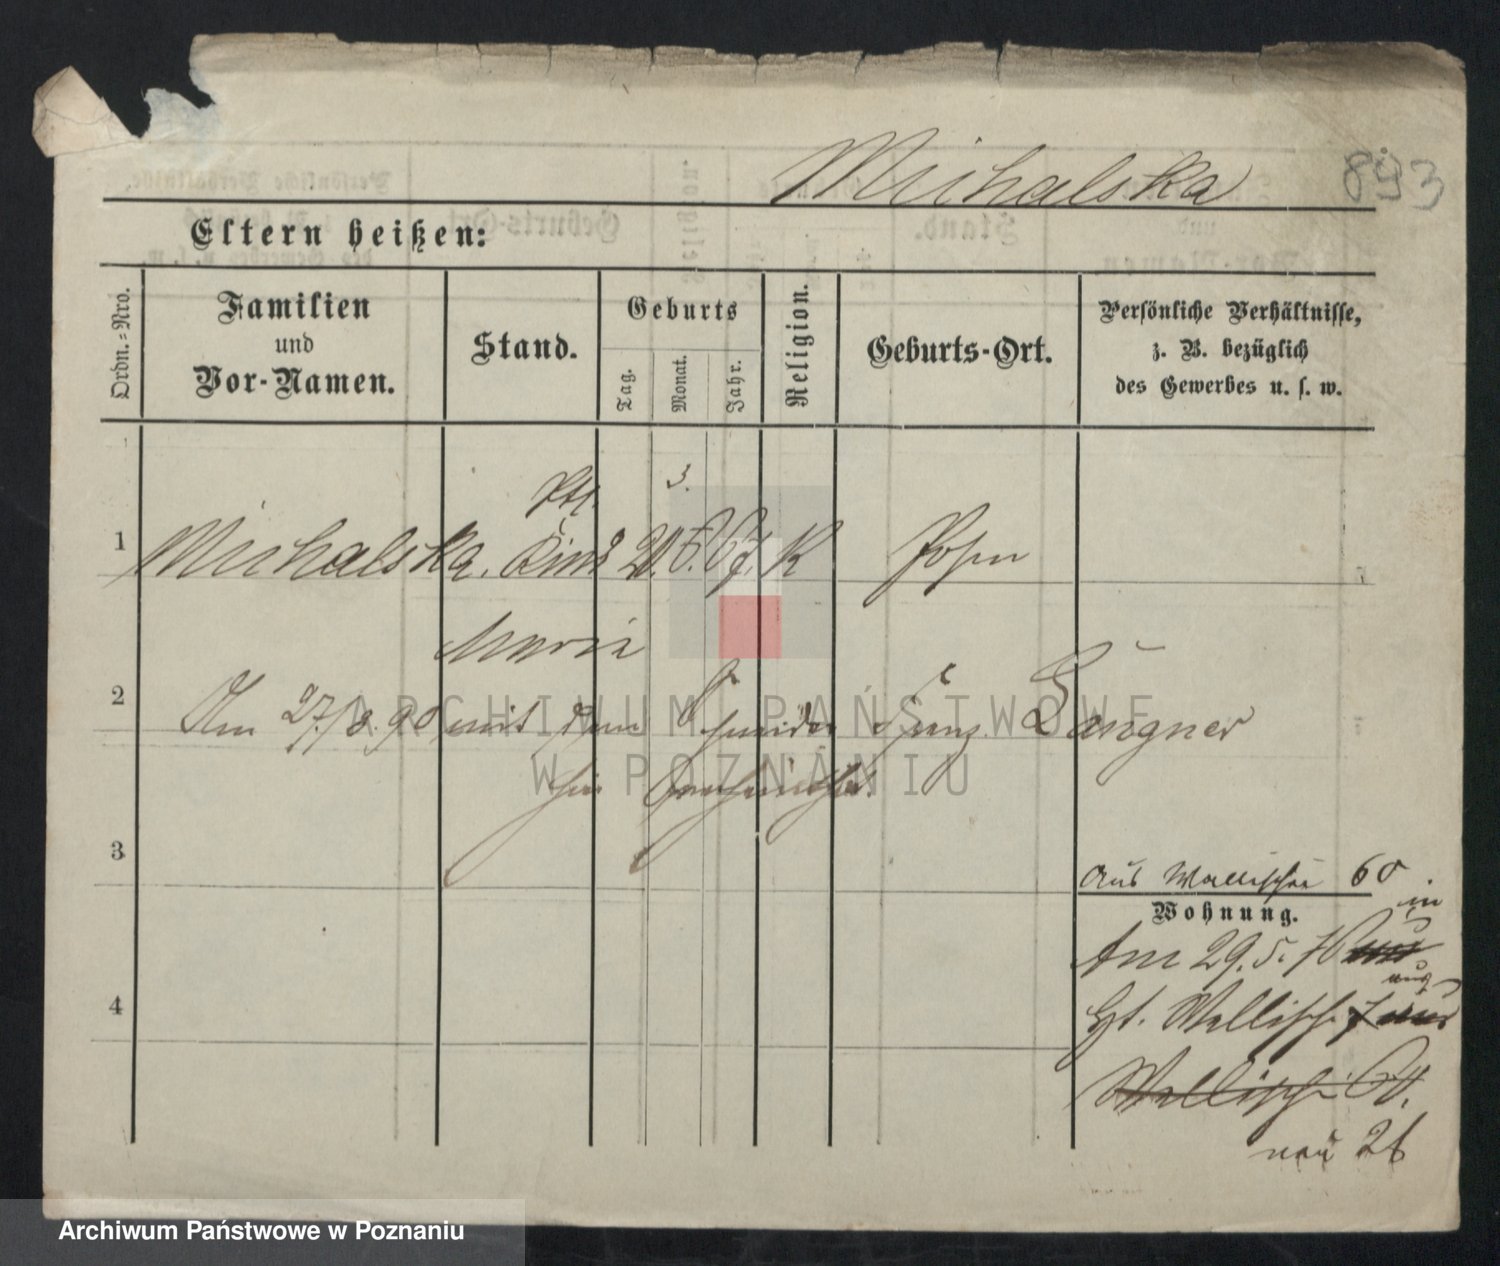 Michalska
893
Eltern heißen:
Ordn.-Nro.
Familien
und
Vor-Namen.
Stand.
Geburts
Tag.
Monat.
Jahr.
Religion.
Geburts-Ort.
Persönliche Verhältnisse,
z. B. bezüglich
des Gewerbes u. s. w.
3.
1
Michalska. Kind 20. 6. 67. K Posen
Maria
2
Am 27./8. 90 mit dem Franz Längner
hier
3
Aus Wallischei 60
Wohnung.
in
Am 29. 5. 70
aus
Wallisch. 7
Wallischei
neu 26
4
ARCHIWUM PAŃSTWOWE
W POZNANIU
Archiwum Państwowe w Poznaniu